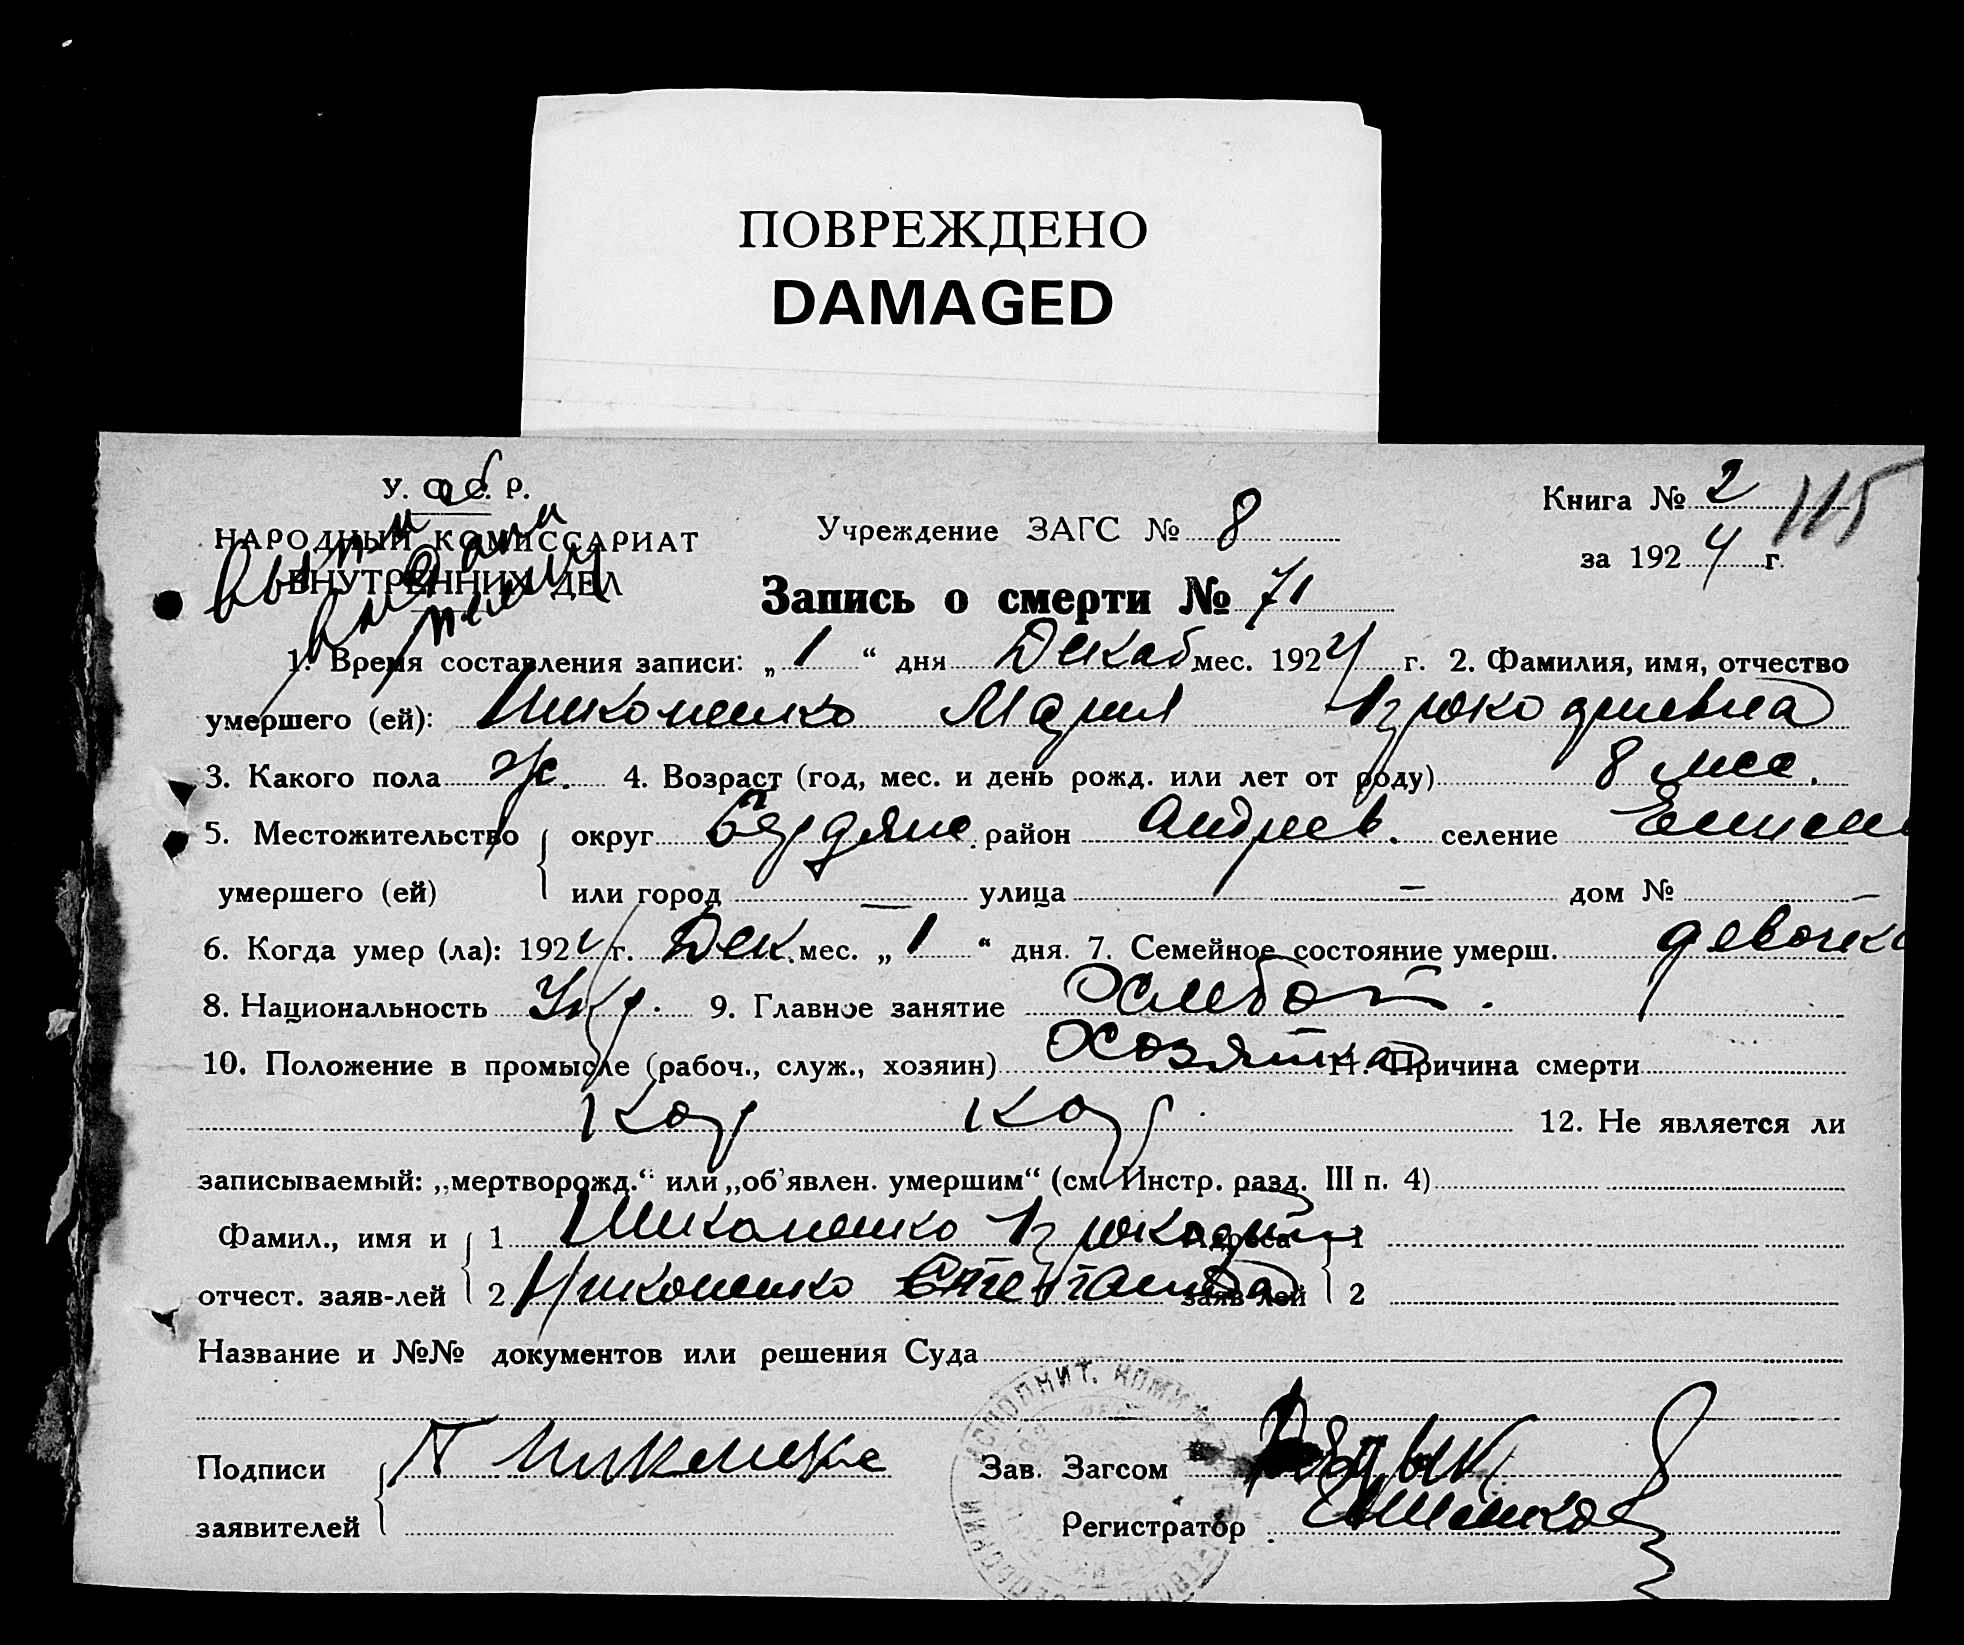 ПОВРЕЖДЕНО
DAMAGED
У. С. С. Р.
НАРОДНЫЙ КОМИССАРИАТ
ВНУТРЕННИХ ДЕЛ
Учреждение ЗАГС № 8
Книга № 2 115
за 1924 г.
Запись о смерти № 71
1. Время составления записи: „1“ дня Декаб мес. 1924 г. 2. Фамилия, имя, отчество
умершего (ей): Никоненко Мария
3. Какого пола ж. 4. Возраст (год, мес. и день рожд. или лет от роду) 8 мес.
5. Местожительство округ Бердянс. район Андреев. селение
умершего (ей) или город — улица — дом № —
6. Когда умер (ла): 1924 г. Дек. мес. „1“ дня. 7. Семейное состояние умерш. девочка
8. Национальность Укр. 9. Главное занятие Хлебоп.
10. Положение в промысле (рабоч., служ., хозяин) Хозяйка 11. Причина смерти
12. Не является ли
записываемый: „мертворожд.“ или „об'явлен. умершим“ (см. Инстр. разд. III п. 4)
Фамил., имя и 1 Никоненко Адреса 1
отчест. заяв-лей 2 Никоненко заяв-лей 2
Название и №№ документов или решения Суда
Подписи Зав. Загсом
заявителей Регистратор
ИСПОЛНИТ. КОМИТЕТ